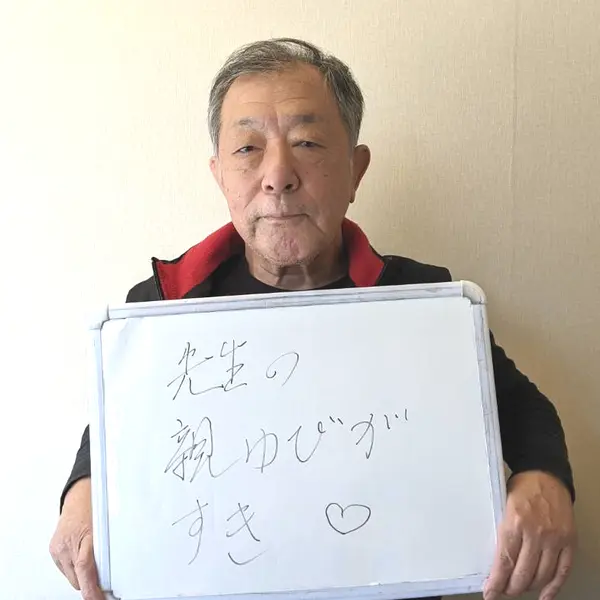 先生の
親ゆびが
すき ♡